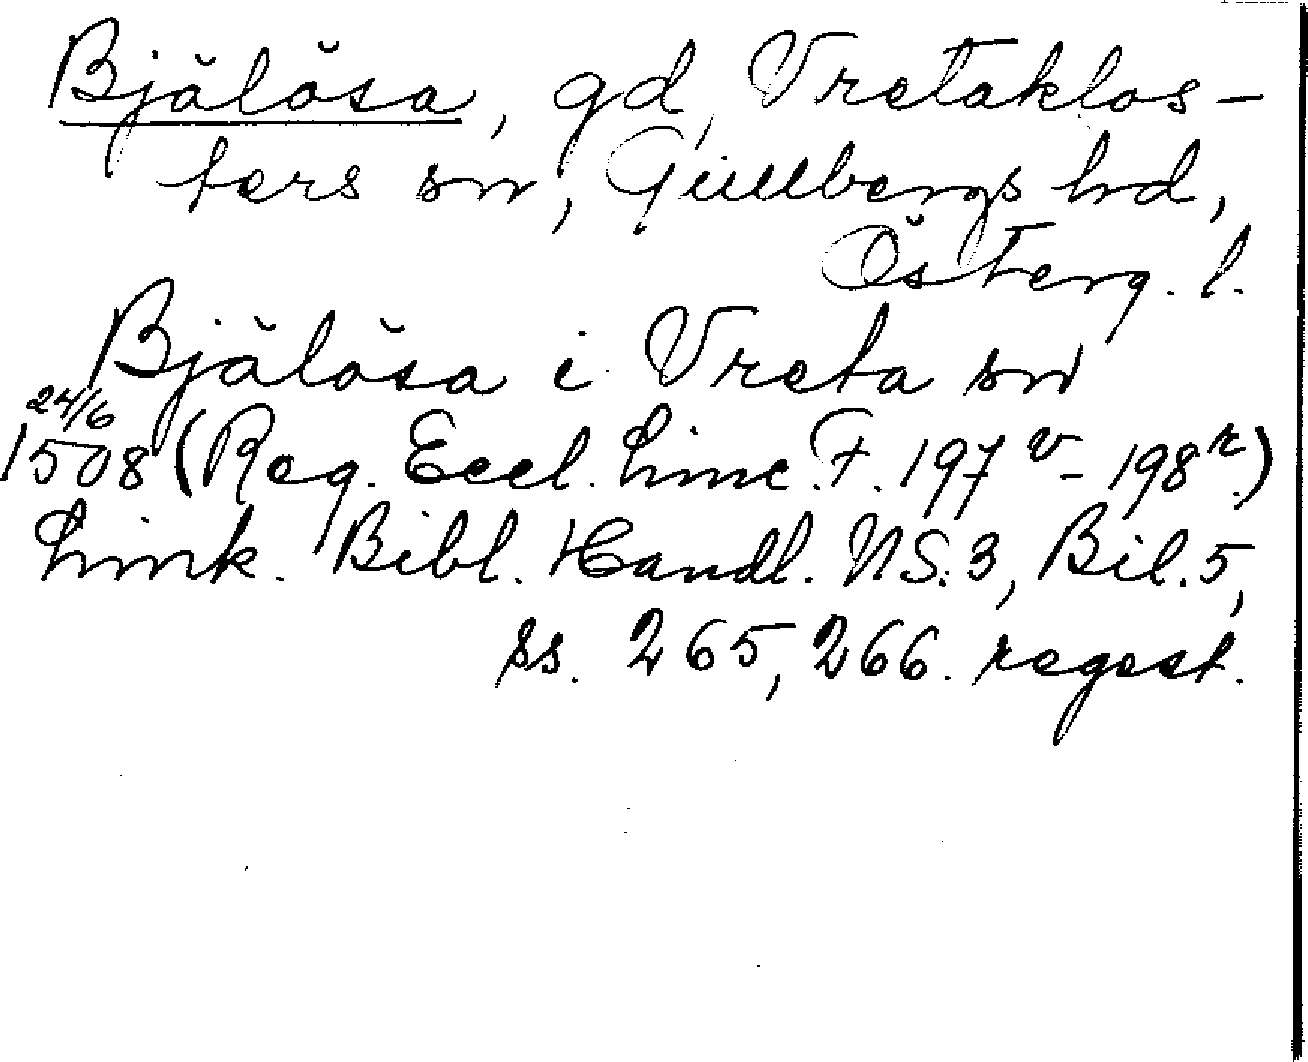 Bjälösa, gd, Vretaklos-
ters sn, Gullbergs hd,
Österg. l.
Bjälösa i Vreta sn
24/6
1508 (Reg. Eccl. Linc. F. 197 v - 198 r.)
Link. Bibl. Handl. NS. 3, Bil. 5,
ss. 265, 266. regest.